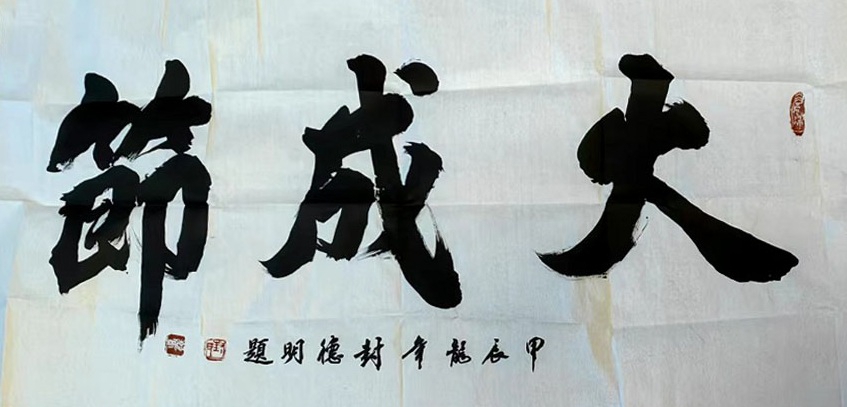 大成節
甲辰龍年封德明題